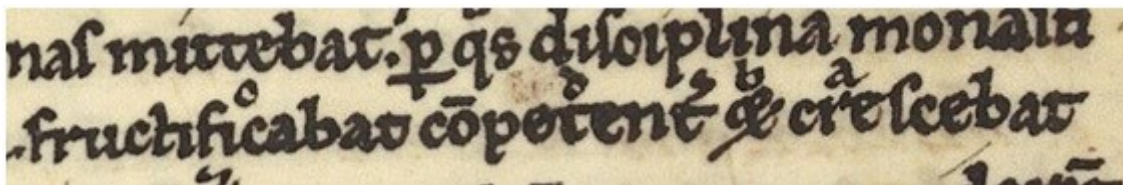 naſ mittebat. ꝑ qͣs diſciplina monaſti
fructificabat cōpetent᷑ & creſcebat